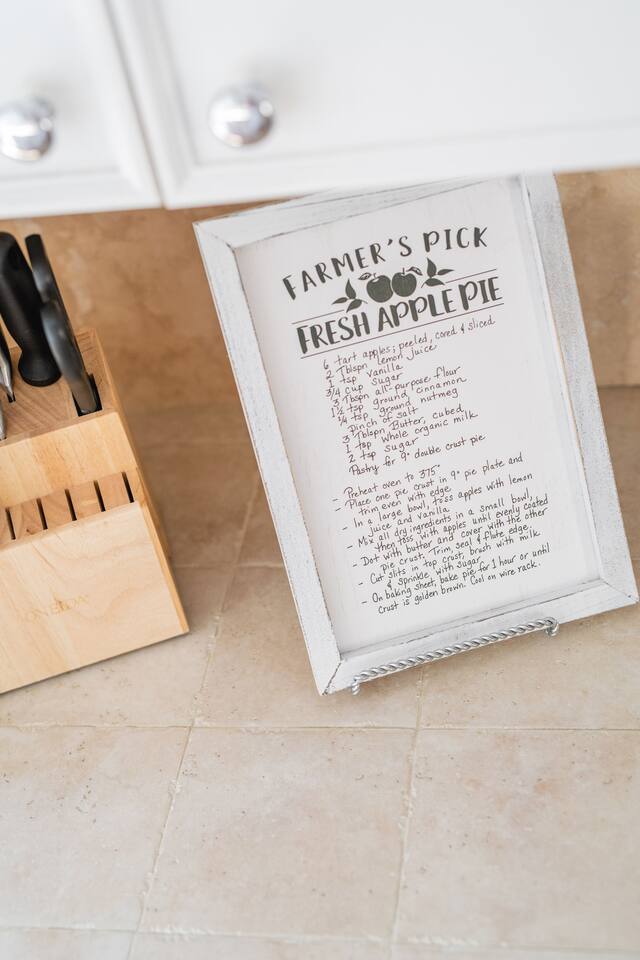 FARMER'S PICK
FRESH APPLE PIE
6 tart apples; peeled, cored & sliced
2 Tblspn lemon juice
1 tsp vanilla
3/4 cup sugar
3 Tblspn all-purpose flour
1½ tsp ground cinnamon
¼ tsp ground nutmeg
Pinch of salt
3 Tblspn Butter, cubed,
1 tsp whole organic milk
2 tsp sugar
Pastry for 9" double crust pie
- Preheat oven to 375°
- Place one pie crust in 9" pie plate and
trim even with edge
- In a large bowl, toss apples with lemon
juice and vanilla
- Mix all dry ingredients in a small bowl,
then toss with apples until evenly coated
- Dot with butter and cover with the other
pie crust. Trim, seal & flute edge.
- Cut slits in top crust, brush with milk
& sprinkle with sugar
- On baking sheet, bake pie for 1 hour or until
crust is golden brown. Cool on wire rack.
ONEIDA